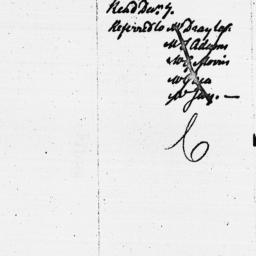 Read Decr. 7.
Referred to Mr Drayton
Mr S Adams
Mr G Morris
Mr Jay. —